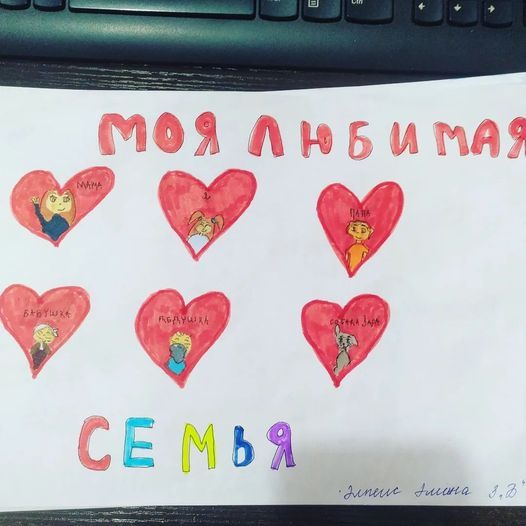 МОЯ ЛЮБИМАЯ
МАМА
Я
ПАПА
БАБУШКА
ДЕДУШКА
СОБАКА ЗАРА
СЕМЬЯ
Элина 3 „Б“